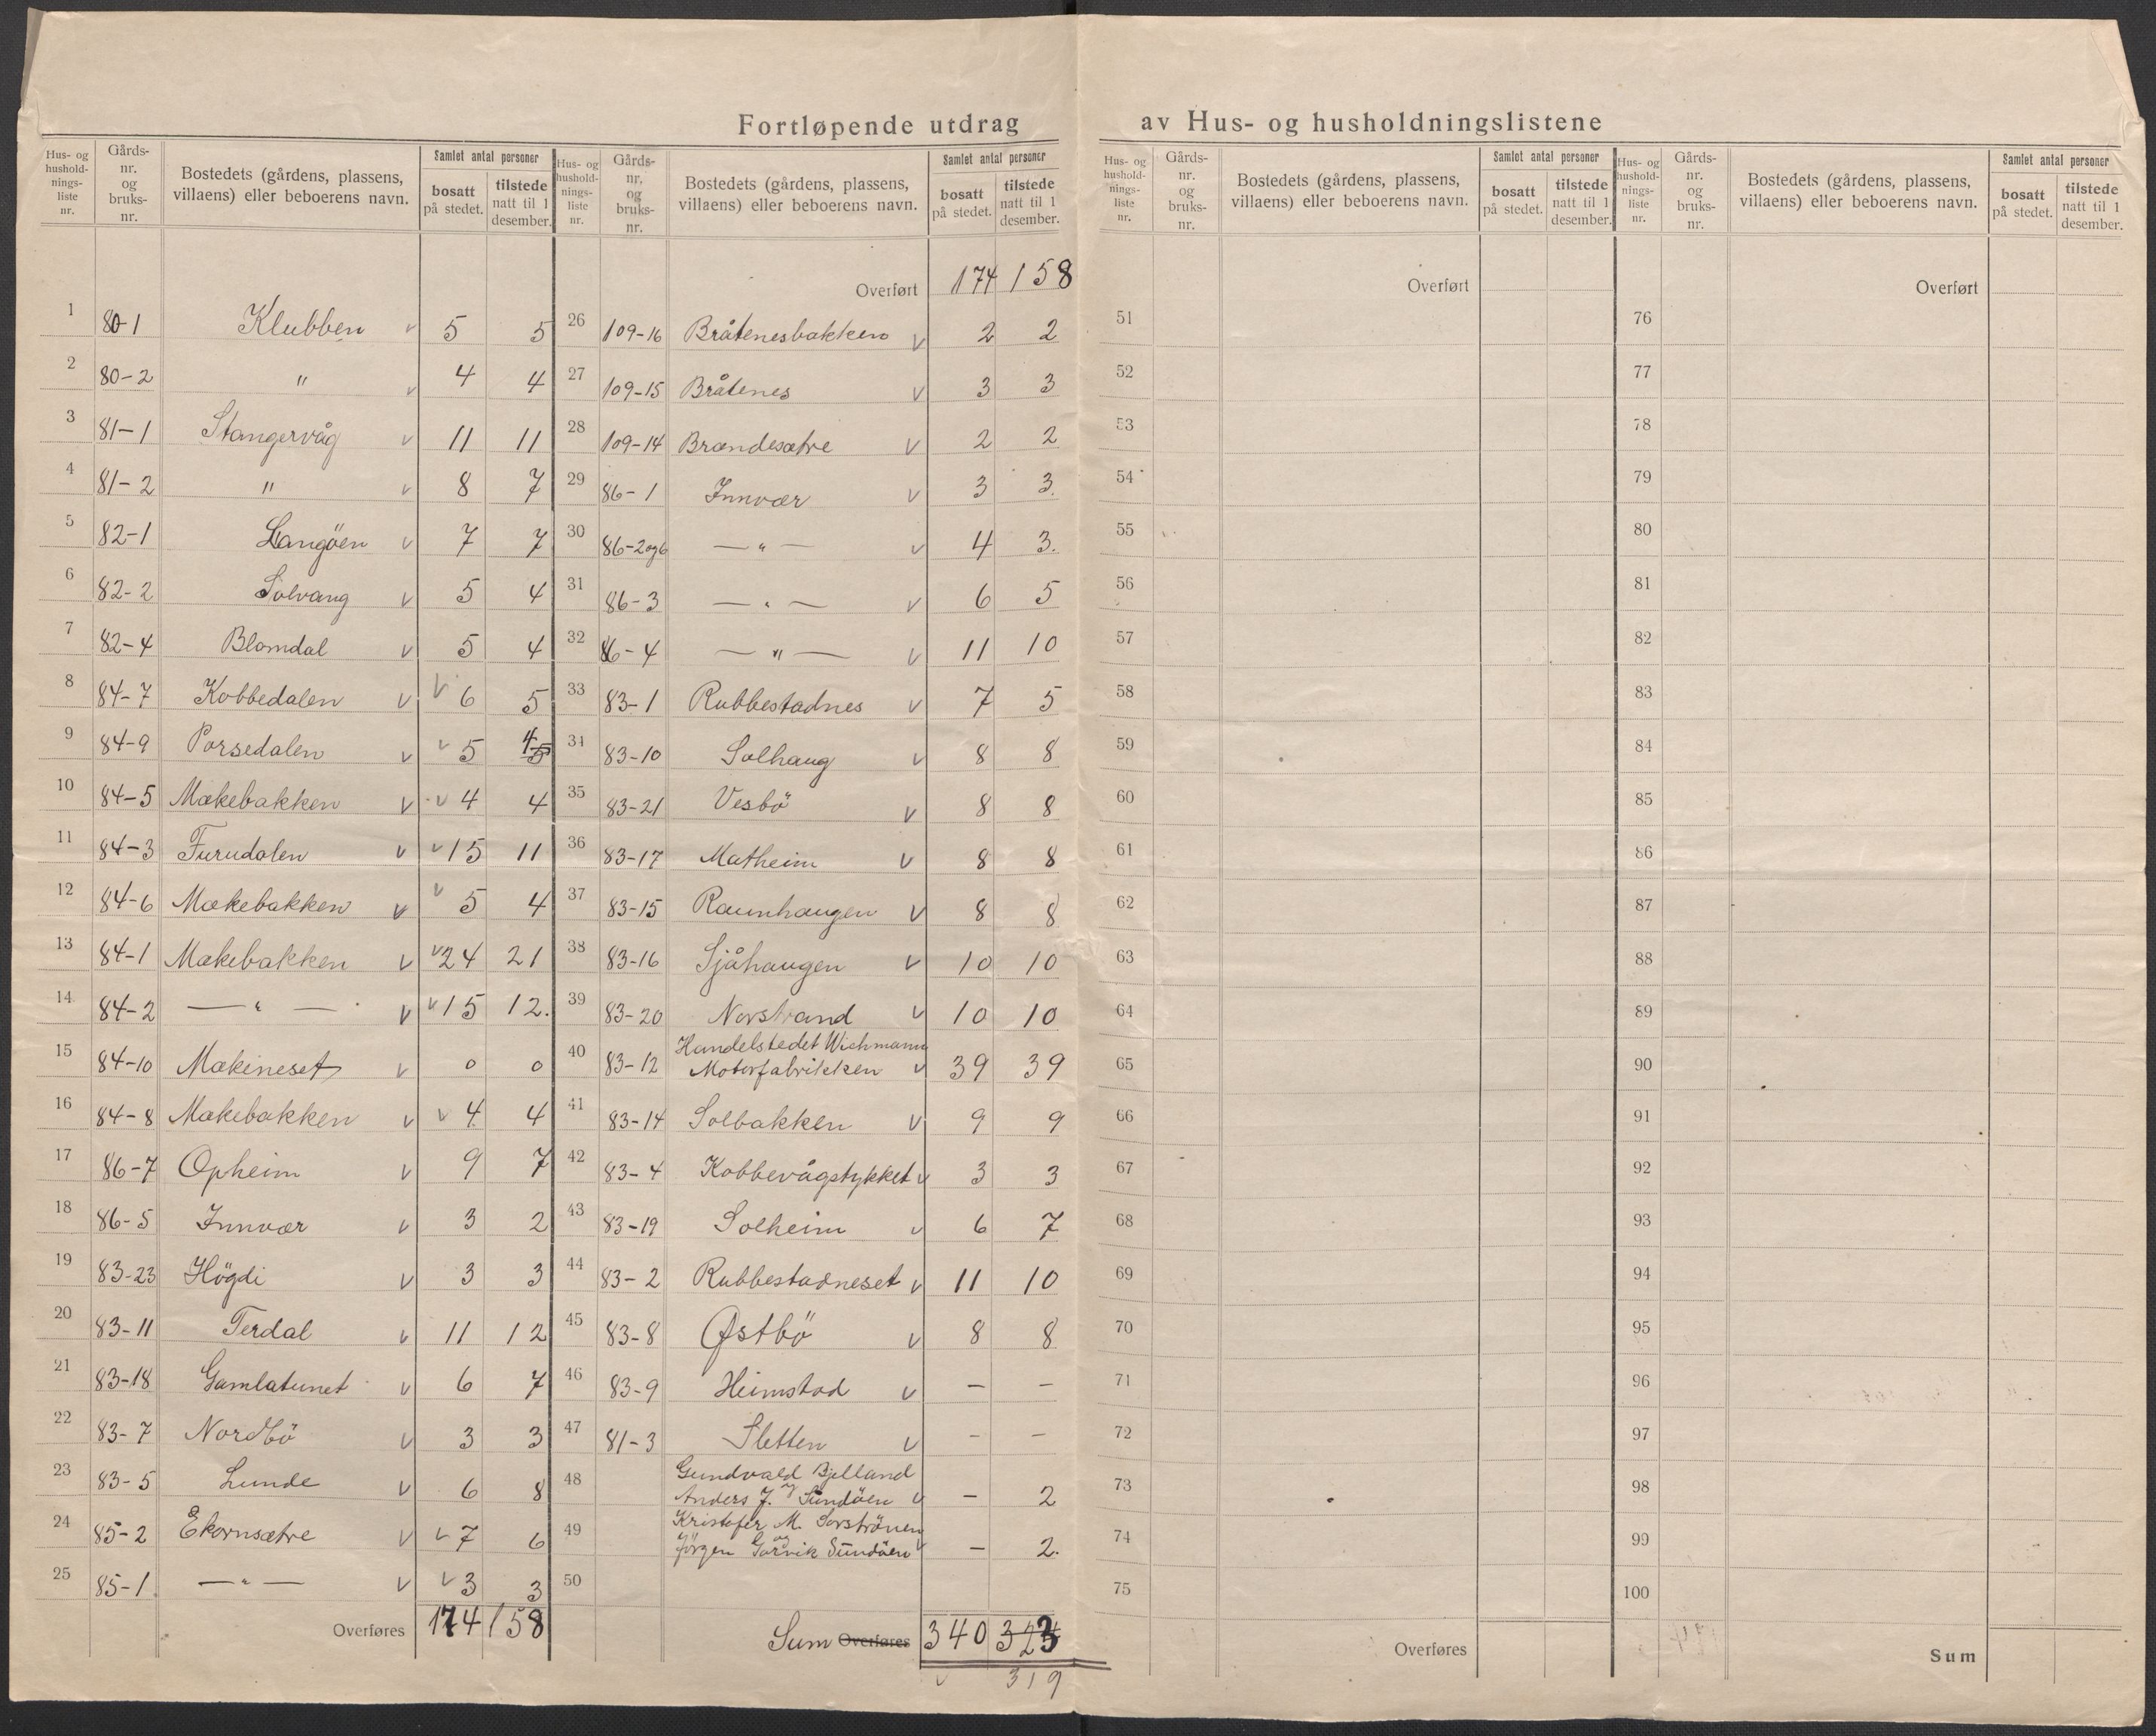 Fortløpende utdrag av Hus- og husholdningslistene
Hus- og hushold-nings-liste nr. | Gårds-nr. og bruks-nr. | Bostedets (gårdens, plassens, villaens) eller beboerens navn. | Samlet antal personer | bosatt på stedet. | tilstede natt til 1 desember.
1 80-1 Klubben v 5 5
2 80-2 " v 4 4
3 81-1 Stangervåg v 11 11
4 81-2 " v 8 7
5 82-1 Langöen v 7 7
6 82-2 Solvang v 5 4
7 82-4 Blomdal v 5 4
8 84-7 Kobbedalen v v 6 5
9 84-9 Porsedalen v v 5 4 5
10 84-5 Mækebakken v v 4 4
11 84-3 Furudalen v v 15 11
12 84-6 Mækebakken v v 5 4
13 84-1 Mækebakken v v 24 21
14 84-2 — " — v v 15 12.
15 84-10 Mækineset v 0 0
16 84-8 Mækebakken v v 4 4
17 86-7 Opheim v 9 7
18 86-5 Innvær v 3 2
19 83-23 Högdi v 3 3
20 83-11 Terdal v 11 12
21 83-18 Gamlatunet v 6 7
22 83-7 Nordbö v 3 3
23 83-5 Lunde v 6 8
24 85-2 Ekornsætre v v 7 6
25 85-1 — " — v v 3 3
Overføres 174 158
Hus- og hushold-nings-liste nr. | Gårds-nr. og bruks-nr. | Bostedets (gårdens, plassens, villaens) eller beboerens navn. | Samlet antal personer | bosatt på stedet. | tilstede natt til 1 desember.
Overført 174 158
26 109-16 Bråtenesbakken v 2 2
27 109-15 Bråtenes v 3 3
28 109-14 Brændesætre v 2 2
29 86-1 Innvær v 3 3.
30 86-2og6 — " — v 4 3.
31 86-3 — " — v 6 5
32 86-4 — " — v 11 10
33 83-1 Rubbestadnes v 7 5
34 83-10 Solhaug v 8 8
35 83-21 Vesbö v 8 8
36 83-17 Matheim v 8 8
37 83-15 Raunhaugen v 8 8
38 83-16 Sjåhaugen v 10 10
39 83-20 Norstrand v 10 10
40 83-12 Handelstedet Wichmann
Motorfabrikken v 39 39
41 83-14 Solbakken v 9 9
42 83-4 Kobbevågstykket v 3 3
43 83-19 Solheim v 6 7
44 83-2 Rubbestadneset v 11 10
45 83-8 Østbö v 8 8
46 83-9 Heimstad v — —
47 81-3 Sletten v — —
48 Gundvald Bjelland
Anders J. og Sundöen v — 2
49 Kristofer M. Sorströnen
og
Jörgen Gorvik Sundöen v — 2.
50
Sum Overføres 340 323
v 319
Hus- og hushold-nings-liste nr. | Gårds-nr. og bruks-nr. | Bostedets (gårdens, plassens, villaens) eller beboerens navn. | Samlet antal personer | bosatt på stedet. | tilstede natt til 1 desember.
Overført
51
52
53
54
55
56
57
58
59
60
61
62
63
64
65
66
67
68
69
70
71
72
73
74
75
Overføres
Hus- og hushold-nings-liste nr. | Gårds-nr. og bruks-nr. | Bostedets (gårdens, plassens, villaens) eller beboerens navn. | Samlet antal personer | bosatt på stedet. | tilstede natt til 1 desember.
Overført
76
77
78
79
80
81
82
83
84
85
86
87
88
89
90
91
92
93
94
95
96
97
98
99
100
Sum